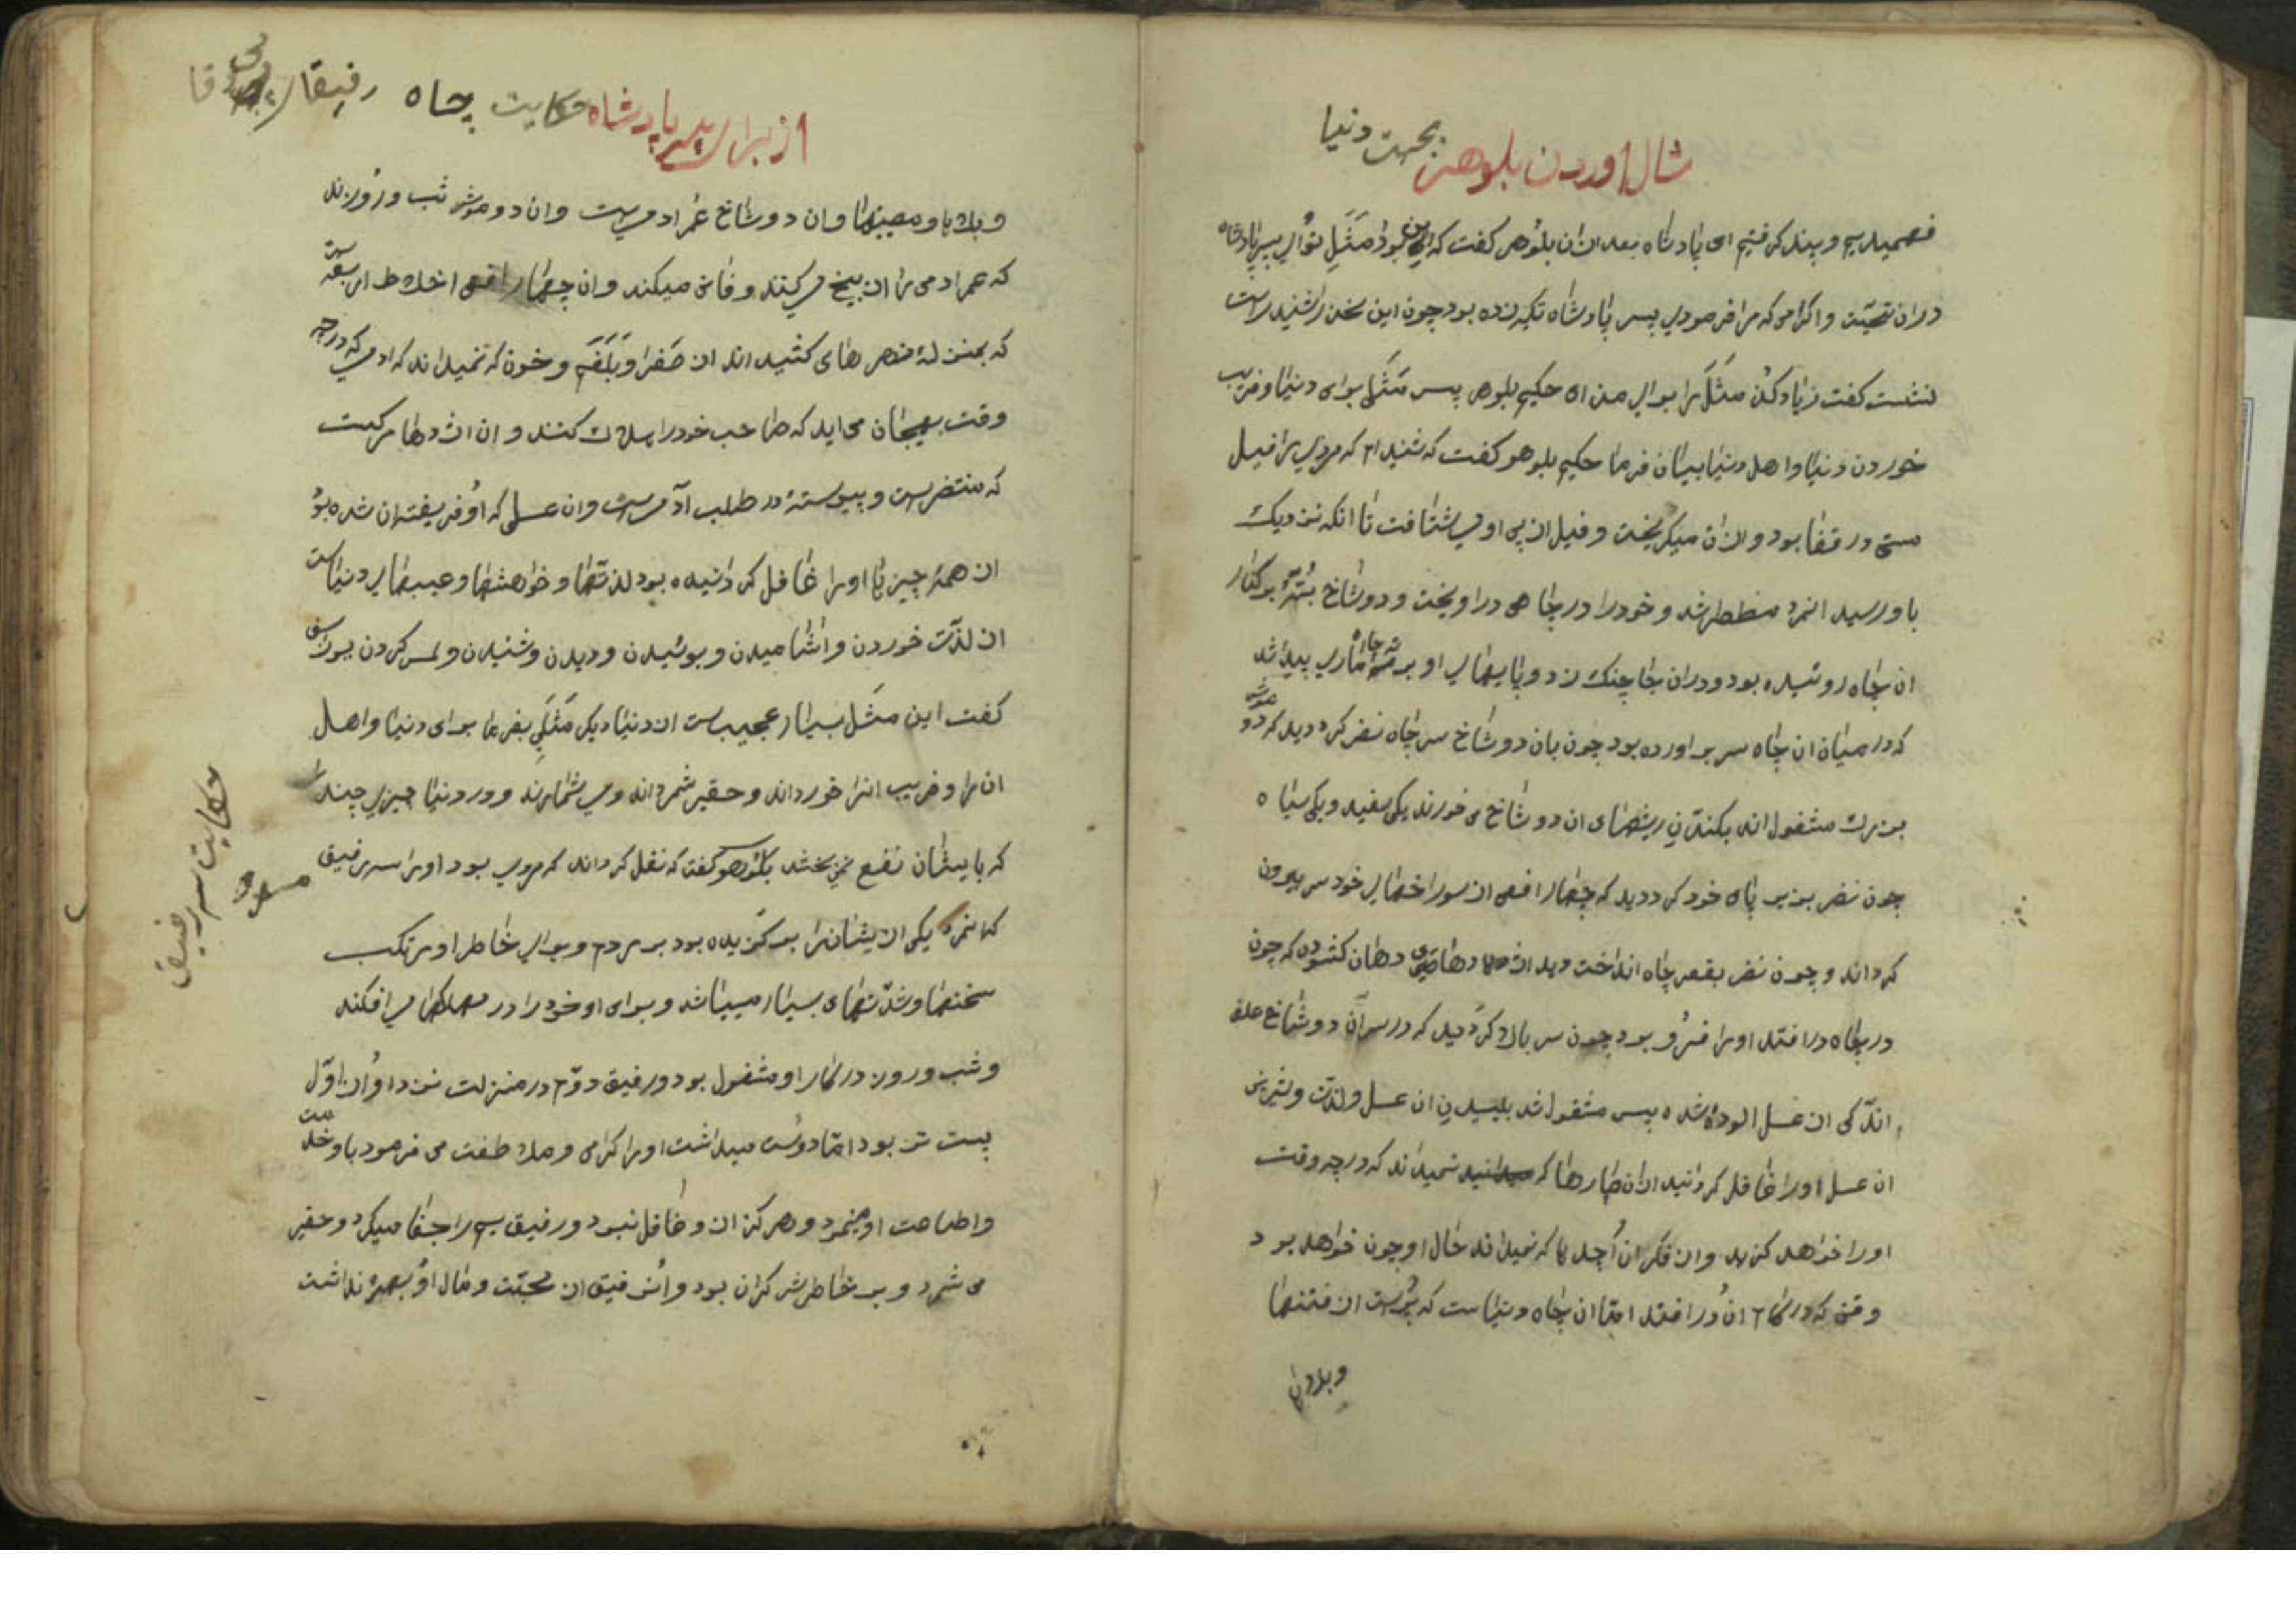 مثال اوردن بلوهر بجهت دنیا
فهمیدیم و پند کرفتیم ای پادشاه بعد ازان بلوهر کفت که این بود مثل تو ای پسر پادشاه
دران تحیّت و اکرامی که مرا فرمودی پسر پادشاه تکیه زده بود چون این سخن را شنید راست
نشست کفت زیاد کن مثل را برای من ای حکیم بلوهر پس مثلی برای دنیا و فریب
خوردن دنیا و اهل دنیا بیان فرما حکیم بلوهر کفت که شنیدام که مردی را فیل
مستی در قفا بود و ازان میکریخت و فیل از پی او می شتافت تا انکه نزدیک
باو رسید انمرد مضطر شد و خود را در چاهی دراویخت و دو شاخ بر کنار
ان چاه روئیده بود و دران جا چنک زد و پایهای او بر سر ماری پیدا شد
که در میان ان چاه سر بر اورده بود چون بان دو شاخ سر چاه نضر کرد دید که دو موش
بزرک مشغول اند بکندن ریشهای ان دو شاخ می خورند یکی سفید و یکی سیاه
چون نضر بزیر پای خود کرد دید که چهار افعی از سوراخهای خود سر بیرون
کرداند و چون نضر بقعر چاه انداخت دید اژدهای دهان کشوده که چون
در چاه درافتد اورا فرو برد چون سر بالا کرد دید که در سر ان دو شاخ
اندکی از عسل الوده شده پس مشغول شد بلیسیدن ان عسل و لذّت و شیرینی
ان عسل اورا غافل کردانید ازان مارها که نمیداند که در چه وقت
اورا خواهد کزید و از فکر ان اژدها که نمیداند حال او چون خواهد بود
وقتی که در کام ان درافتد امّا ان چاه دنیاست که پر است از فتنها
و بلاها
از برای پسر پادشاه حکایت چاه
و بلاها و مصیبتها و ان دو شاخ عمر ادمی است و ان دو موش شب و روزند
که عمر ادمی را از بیخ می کنند و فانی میکند و ان چهار افعی اخلاط اربعه است
که بمنزلهٔ زهرهای کشیده اند از صفرا و بلغم و خون که نمیداند که ادمی که در چه
وقت بهیجان می اید که صاحب خود را هلاک کنند و ان اژدها مرکست
که منتضر است و پیوسته در طلب ادمی است و ان عسلی که او فریفته ان شده بود
از همه چیزها اورا غافل کردانیده بود لذّتها و خواهشها و عیبهای دنیا است
از لذّت خوردن و اشامیدن و بوئیدن و دیدن و شنیدن و لمس کردن
کفت این مثل بسیار عجیب است از دنیا دیکر مثلی بفرما برای دنیا و اهل
ان را و فریب انرا خورداند و حقیر شمرداند و در دنیا چیزی چند را
که بایشان نفع نمی بخشد بلوهر کفت که نقل کرداند که مردی بود اورا سه رفیق
که انمرد یکی ازیشانرا بر کزیده بود بر مردم و برای خاطر او مرتکب
سختیها و شدّتهای بسیار میباشد و برای او خود را در مهلکها می افکند
و شب و روز در کار او مشغول بود و رفیق دوّم در منزلت نزد او از اوّل
پست تر بود امّا دوست میداشت اورا کرامی و ملاطفت می فرمود باو خدمت
و اطاعت او مینمود و هرکز ازو غافل نبود و رفیق سیم را جفا میکرد و حقیر
می شمرد و بر خاطرش کران بود و انرفیق از محبّت و مال او بهره نداشت
حکایت سه رفیق